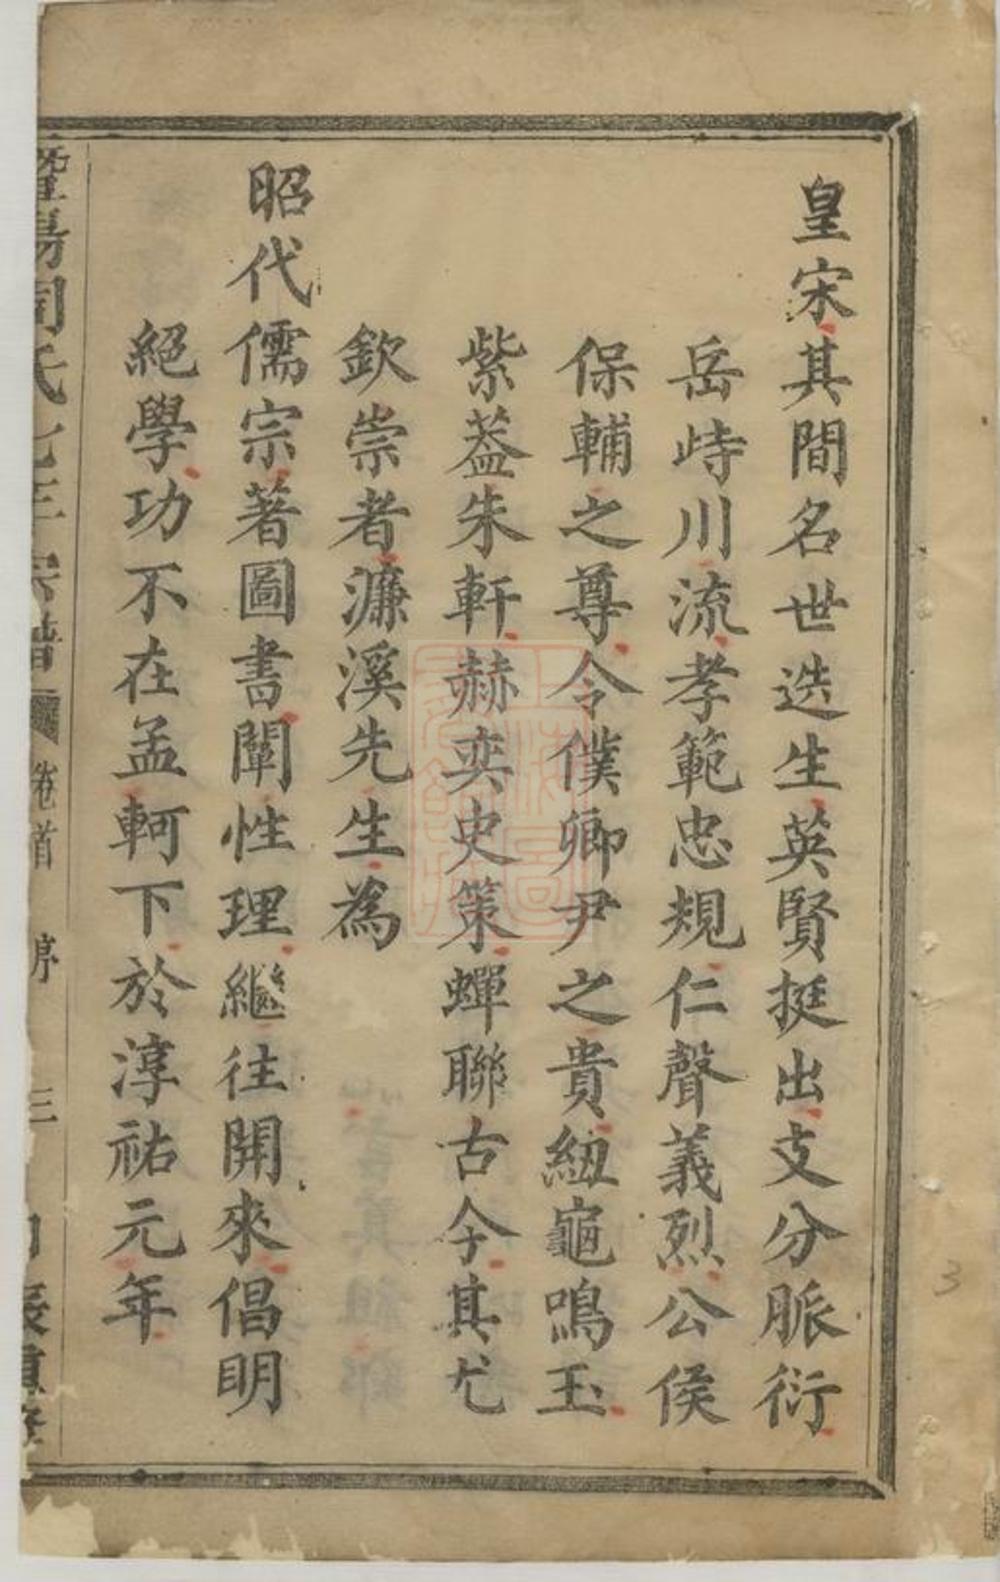 皇宋其間名世迭生英賢挺出支分脈衍
岳峙川流孝範忠規仁聲義烈公侯
保輔之尊令僕卿尹之貴紐龜鳴玉
紫葢朱軒赫奕史策蟬聯古今其尤
欽崇者濂溪先生為
昭代儒宗著圖書闡性理繼往開來倡明
絕學功不在孟軻下於淳祐元年
暨陽周氏
宗譜
卷首
序
三